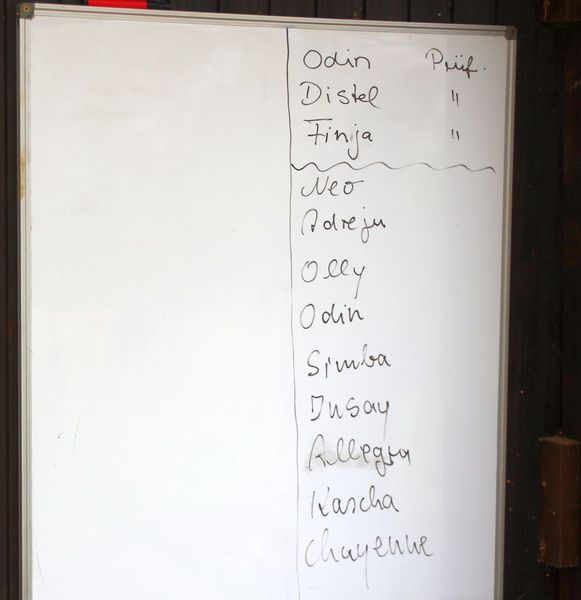 Odin Prüf.
Distel "
Finja "
Neo
Adreju
Olly
Odin
Simba
Jusay
Allegra
Kascha
Chayenne